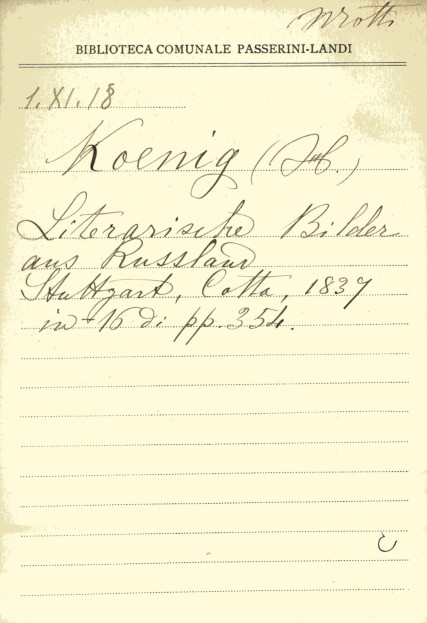 BIBLIOTECA COMUNALE PASSERINI-LANDI
1.XI.18
Koenig (H.)
Literarische Bilder
aus Russland
Stuttgart, Cotta, 1837
in 16 di pp. 354.